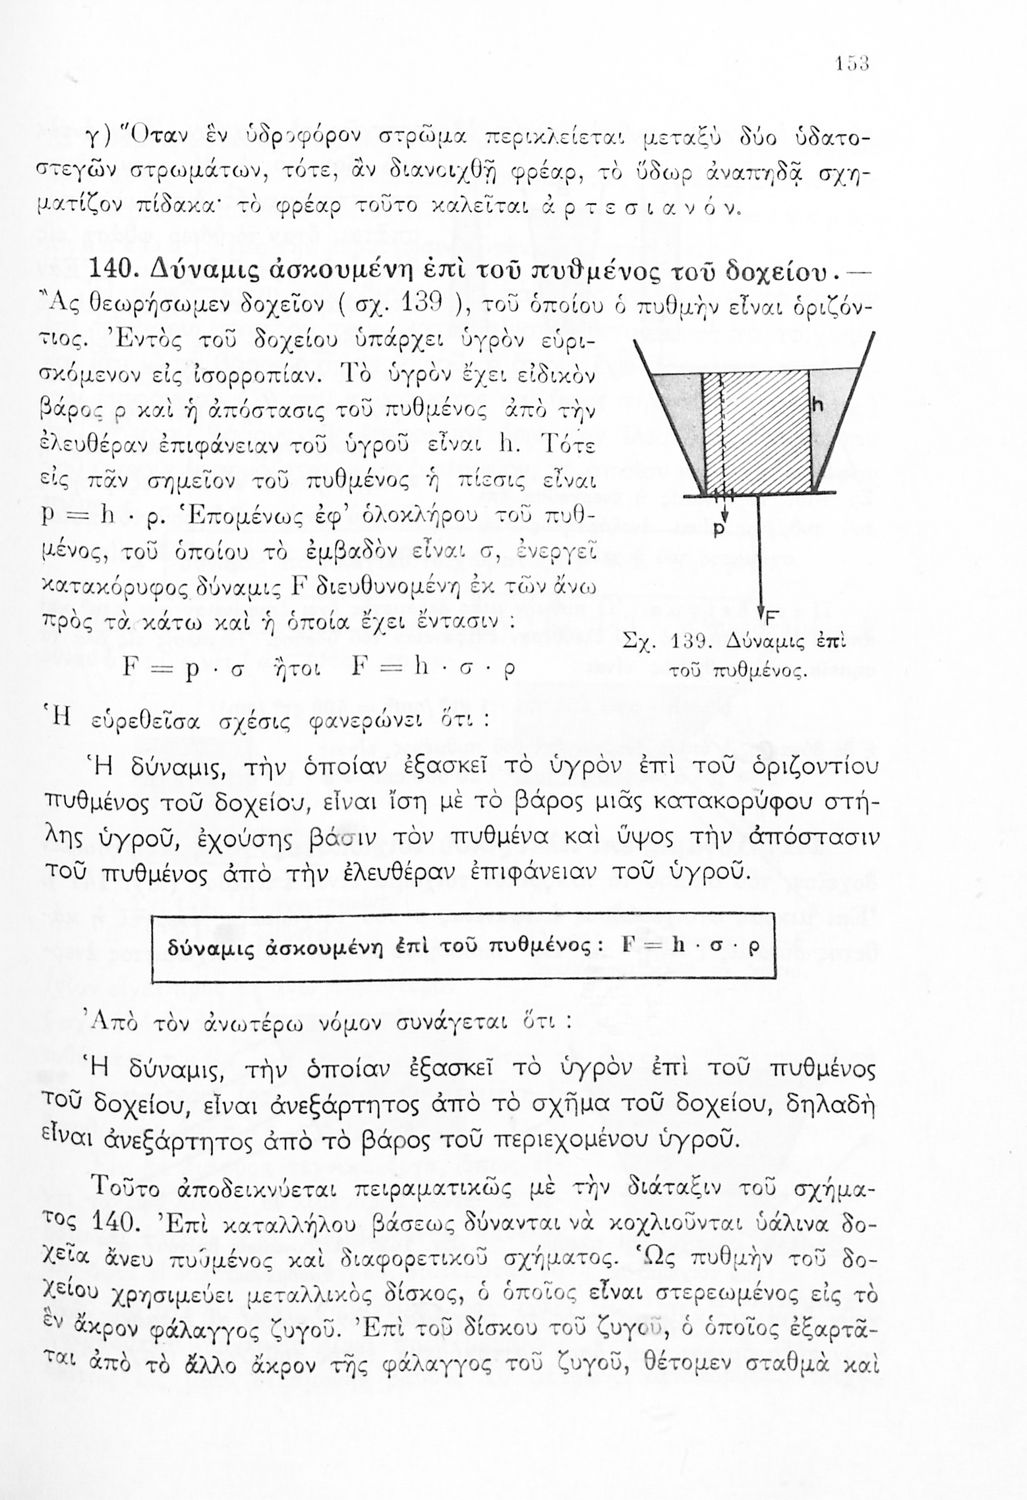 153
γ) Ὅταν ἓν ὑδροφόρον στρῶμα περικλείεται μεταξὺ δύο ὑδατο-
στεγῶν στρωμάτων, τότε, ἂν διανοιχθῇ φρέαρ, τὸ ὕδωρ ἀναπηδᾷ σχη-
ματίζον πίδακα· τὸ φρέαρ τοῦτο καλεῖται ἀ ρ τ ε σ ι α ν ό ν.
140. Δύναμις ἀσκουμένη ἐπὶ τοῦ πυθμένος τοῦ δοχείου. —
Ἂς θεωρήσωμεν δοχεῖον ( σχ. 139 ), τοῦ ὁποίου ὁ πυθμὴν εἶναι ὁριζόν-
τιος. Ἐντὸς τοῦ δοχείου ὑπάρχει ὑγρὸν εὑρι-
σκόμενον εἰς ἰσορροπίαν. Τὸ ὑγρὸν ἔχει εἰδικὸν
βάρος ρ καὶ ἡ ἀπόστασις τοῦ πυθμένος ἀπὸ τὴν
ἐλευθέραν ἐπιφάνειαν τοῦ ὑγροῦ εἶναι h. Τότε
εἰς πᾶν σημεῖον τοῦ πυθμένος ἡ πίεσις εἶναι
p = h · ρ. Ἑπομένως ἐφ’ ὁλοκλήρου τοῦ πυθ-
μένος, τοῦ ὁποίου τὸ ἐμβαδὸν εἶναι σ, ἐνεργεῖ
κατακόρυφος δύναμις F διευθυνομένη ἐκ τῶν ἄνω
πρὸς τὰ κάτω καὶ ἡ ὁποία ἔχει ἔντασιν :
F = p · σ ἤτοι F = h · σ · ρ
h
p
F
Σχ. 139. Δύναμις ἐπὶ
τοῦ πυθμένος.
Ἡ εὑρεθεῖσα σχέσις φανερώνει ὅτι :
Ἡ δύναμις, τὴν ὁποίαν ἐξασκεῖ τὸ ὑγρὸν ἐπὶ τοῦ ὁριζοντίου
πυθμένος τοῦ δοχείου, εἶναι ἴση μὲ τὸ βάρος μιᾶς κατακορύφου στή-
λης ὑγροῦ, ἐχούσης βάσιν τὸν πυθμένα καὶ ὕψος τὴν ἀπόστασιν
τοῦ πυθμένος ἀπὸ τὴν ἐλευθέραν ἐπιφάνειαν τοῦ ὑγροῦ.
δύναμις ἀσκουμένη ἐπὶ τοῦ πυθμένος : F = h · σ · ρ
Ἀπὸ τὸν ἀνωτέρω νόμον συνάγεται ὅτι :
Ἡ δύναμις, τὴν ὁποίαν ἐξασκεῖ τὸ ὑγρὸν ἐπὶ τοῦ πυθμένος
τοῦ δοχείου, εἶναι ἀνεξάρτητος ἀπὸ τὸ σχῆμα τοῦ δοχείου, δηλαδὴ
εἶναι ἀνεξάρτητος ἀπὸ τὸ βάρος τοῦ περιεχομένου ὑγροῦ.
Τοῦτο ἀποδεικνύεται πειραματικῶς μὲ τὴν διάταξιν τοῦ σχήμα-
τος 140. Ἐπὶ καταλλήλου βάσεως δύνανται νὰ κοχλιοῦνται ὑάλινα δο-
χεῖα ἄνευ πυθμένος καὶ διαφορετικοῦ σχήματος. Ὡς πυθμὴν τοῦ δο-
χείου χρησιμεύει μεταλλικὸς δίσκος, ὁ ὁποῖος εἶναι στερεωμένος εἰς τὸ
ἓν ἄκρον φάλαγγος ζυγοῦ. Ἐπὶ τοῦ δίσκου τοῦ ζυγοῦ, ὁ ὁποῖος ἐξαρτᾶ-
ται ἀπὸ τὸ ἄλλο ἄκρον τῆς φάλαγγος τοῦ ζυγοῦ, θέτομεν σταθμὰ καὶ